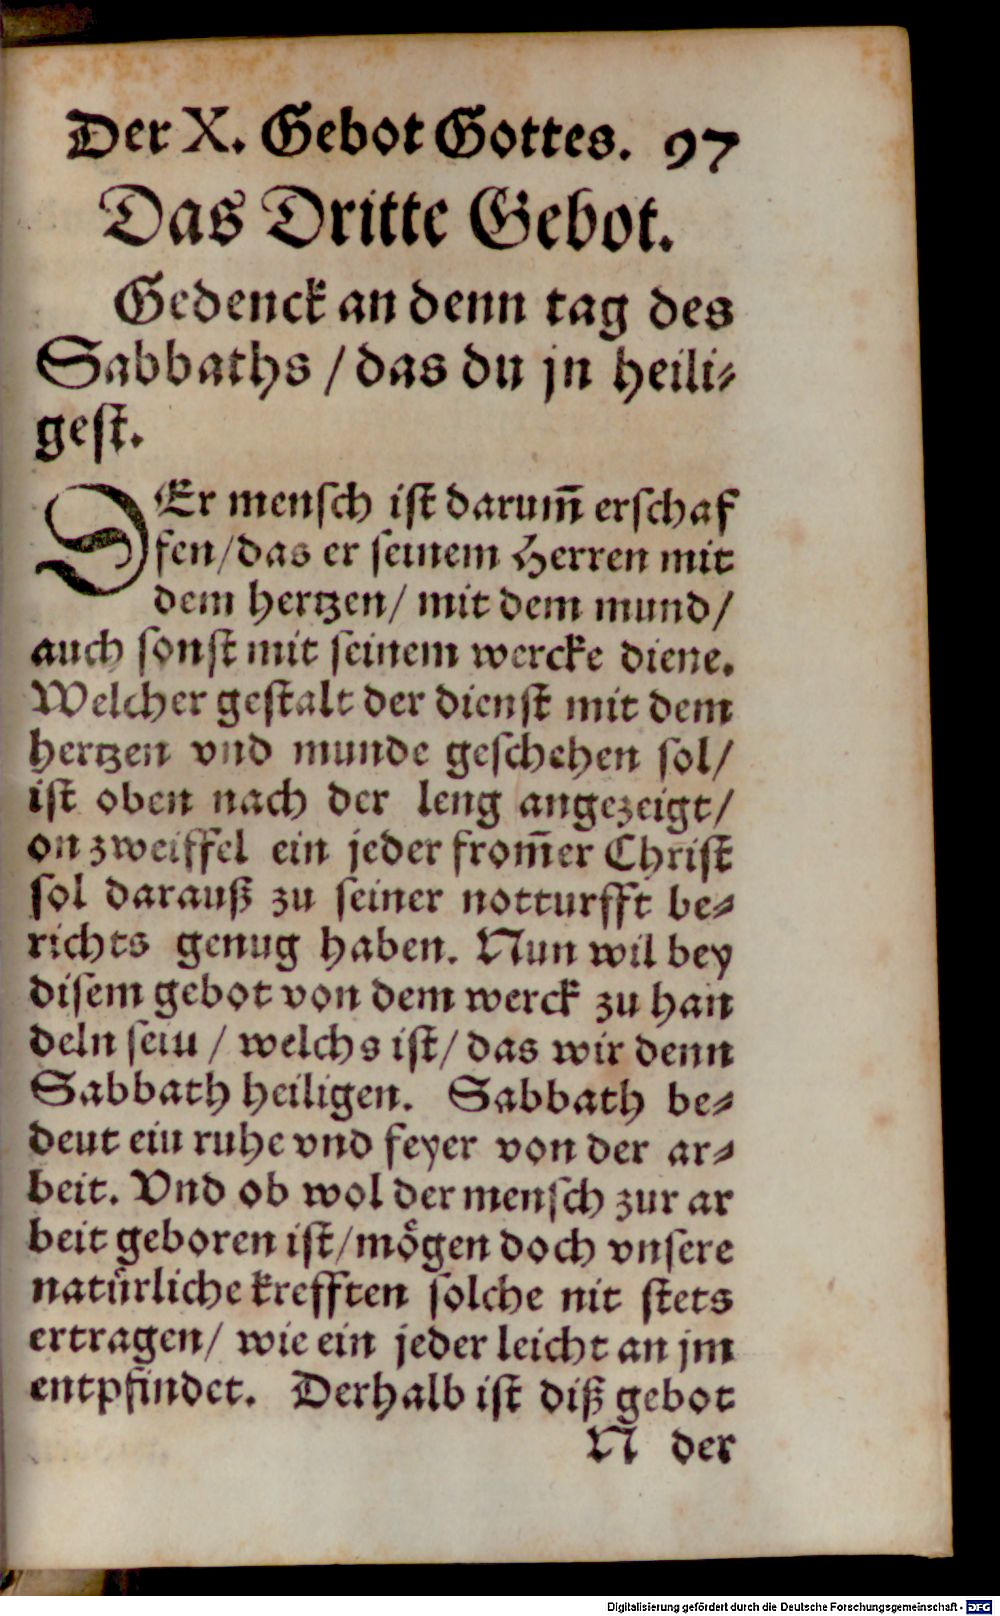 Der X. Gebot Gottes. 97
Das Dritte Gebot.
Gedenck an denn tag des
Sabbaths / das du jn heili⸗
gest.
DEr mensch ist darum̄ erschaf
fen/das er seinem Herren mit
dem hertzen/ mit dem mund/
auch sonst mit seinem wercke diene.
Welcher gestalt der dienst mit dem
hertzen vnd munde geschehen sol/
ist oben nach der leng angezeigt/
on zweiffel ein jeder from̄er Christ
sol darauß zu seiner notturfft be⸗
richts genug haben. Nun wil bey
disem gebot von dem werck zu han
deln sein / welchs ist/ das wir denn
Sabbath heiligen. Sabbath be⸗
deut ein ruhe vnd feyer von der ar⸗
beit. Vnd ob wol der mensch zur ar
beit geboren ist/mögen doch vnsere
natürliche krefften solche nit stets
ertragen/ wie ein jeder leicht an jm
entpfindet. Derhalb ist diß gebot
N der
Digitalisierung gefördert durch die Deutsche Forschungsgemeinschaft - DFG